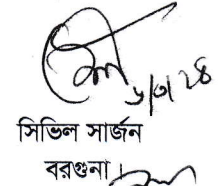 ৬/৩/২৪
সিভিল সার্জন
বরগুনা।